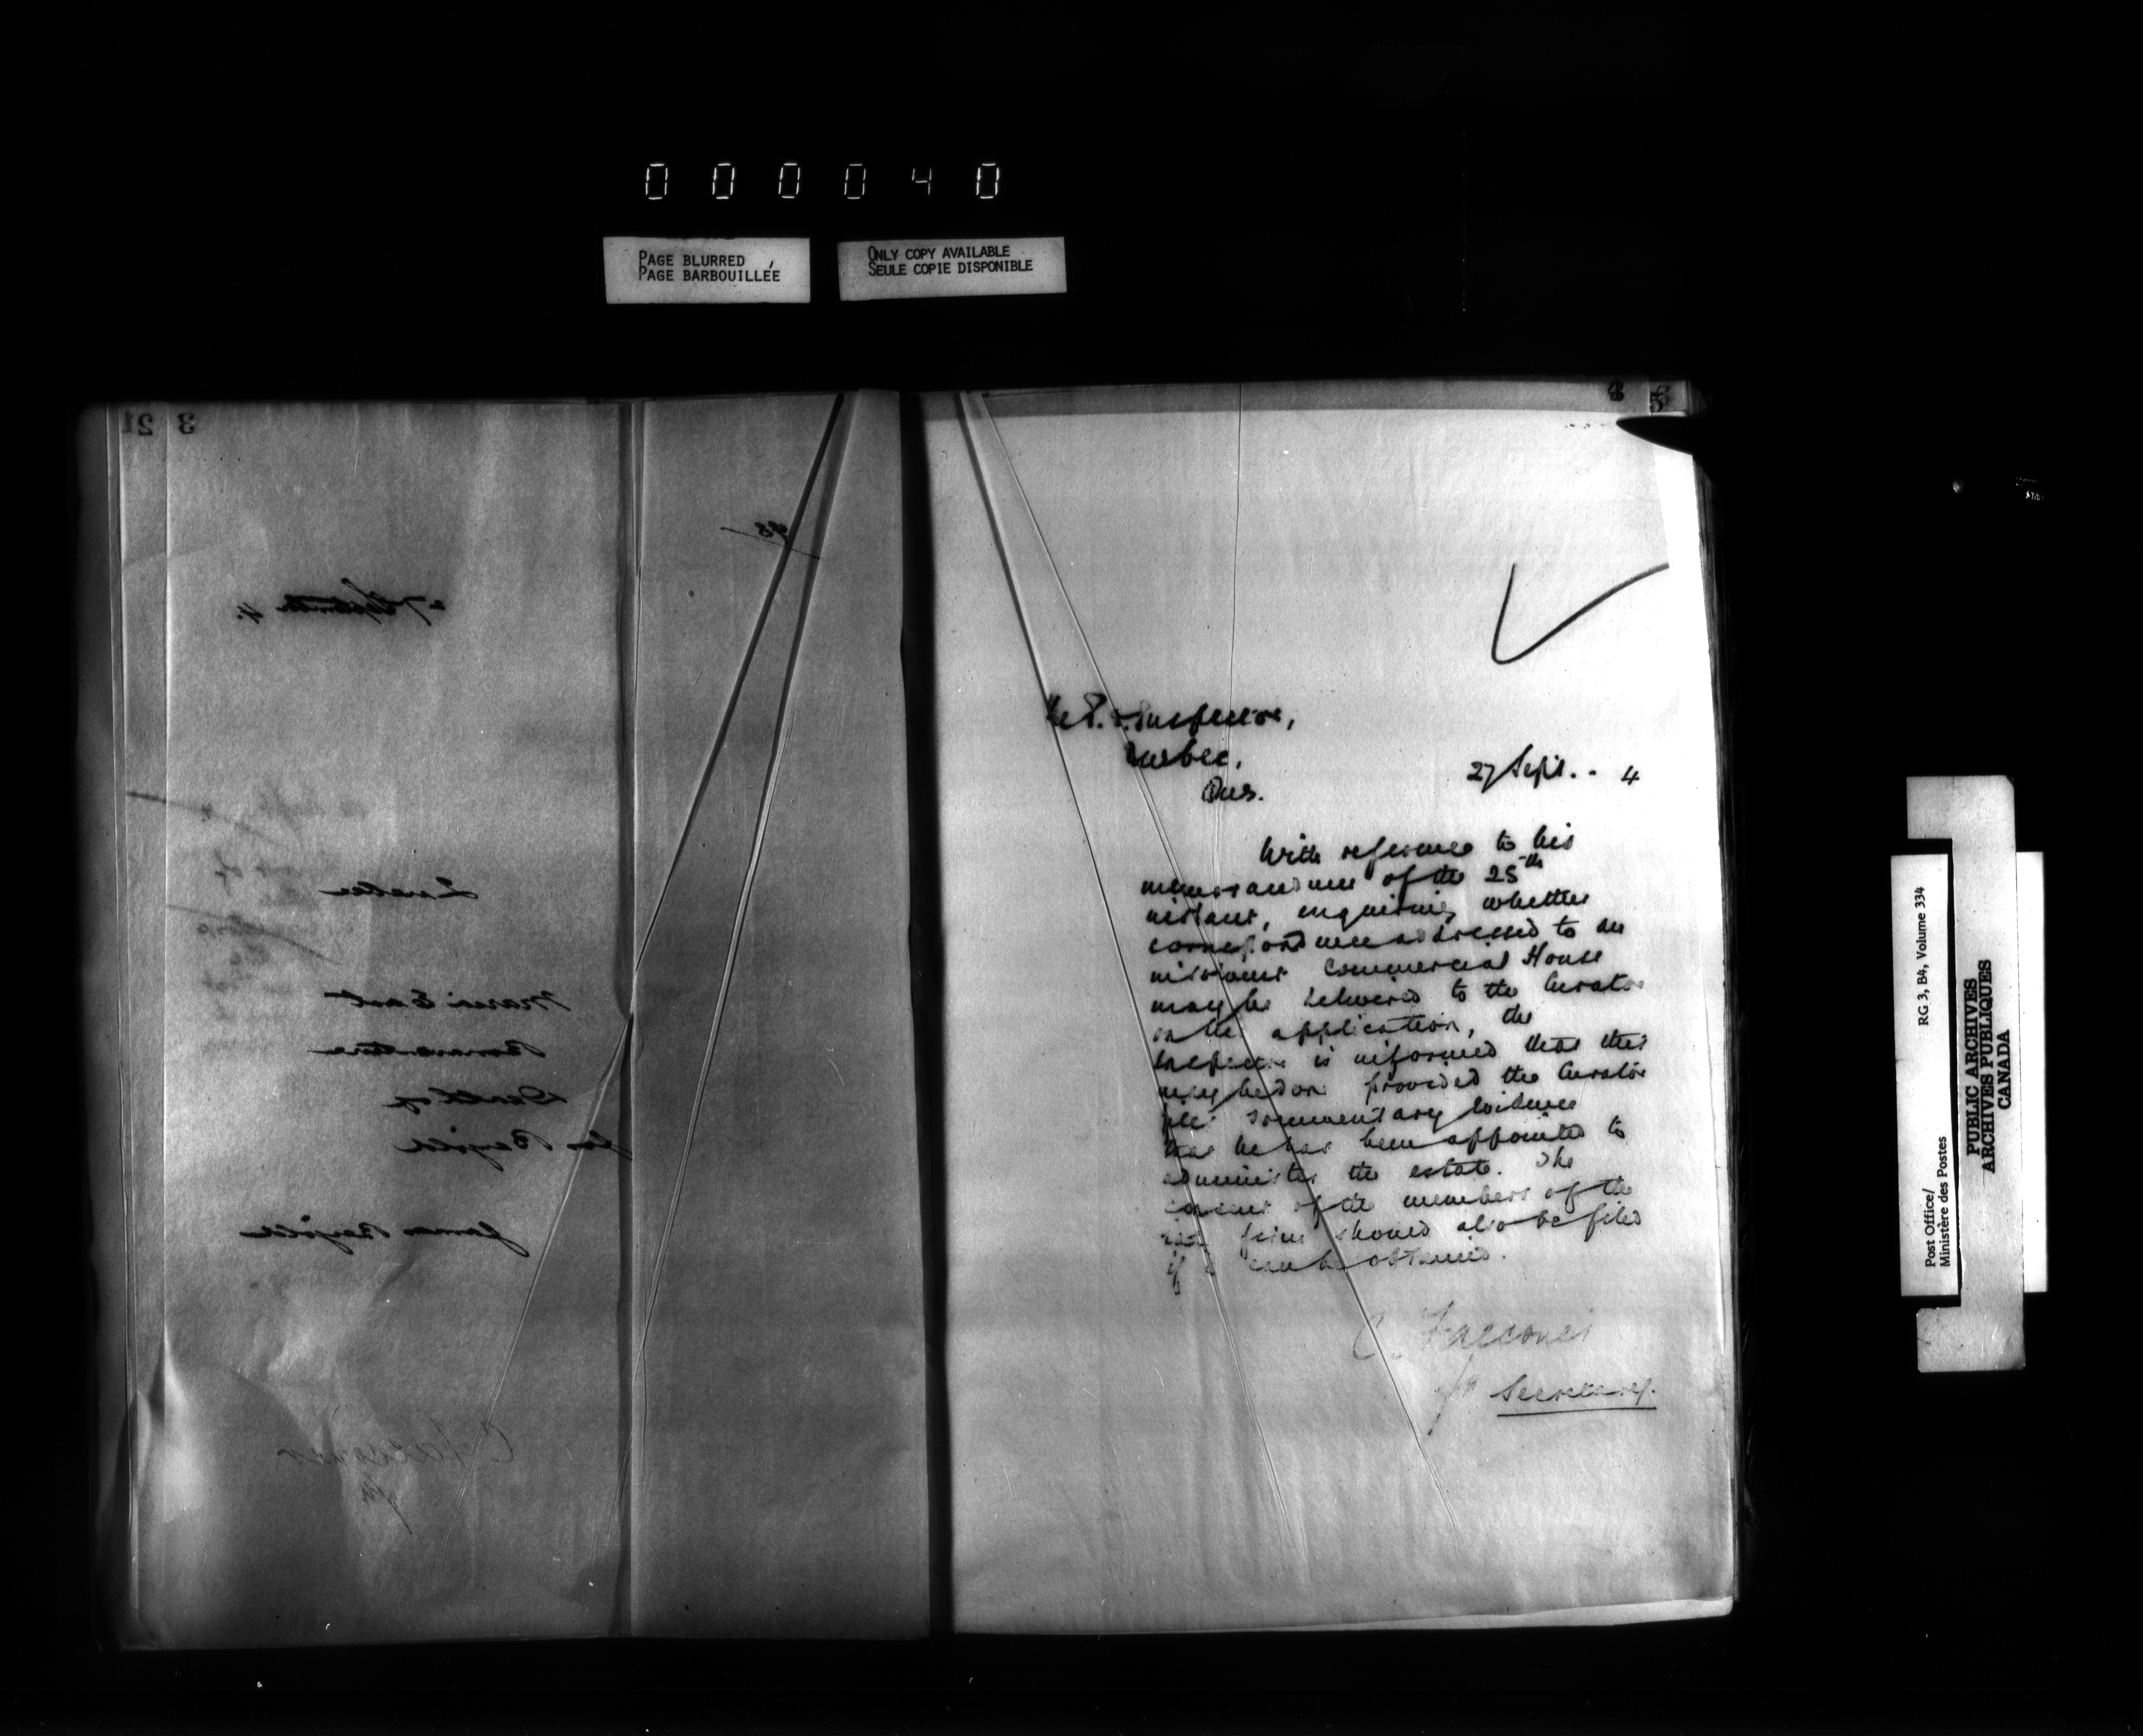 000040
PAGE BLURRED
PAGE BARBOUILLÉE
ONLY COPY AVAILABLE
SEULE COPIE DISPONIBLE
21 3
27 September 4.
Quebec
Maria East
Bonaventure
Death of
James
5
The P. O. Inspector,
Quebec,
Que.
27 Sept. . 4
With reference to his
memorandum of the 25th
instant, enquiring whether
correspondence addressed to an
insolvent Commercial House
may be delivered to the Curator
on his application, the
Inspector is informed that this
may be done provided the Curator
file documentary evidence
that he has been appointed to
administer the estate. The
consent of the members of the
firm should also be filed
if it can be obtained.
C. Falconer
for Secretary.
RG 3, B4, Volume 334
Post Office/
Ministère des Postes
PUBLIC ARCHIVES
ARCHIVES PUBLIQUES
CANADA